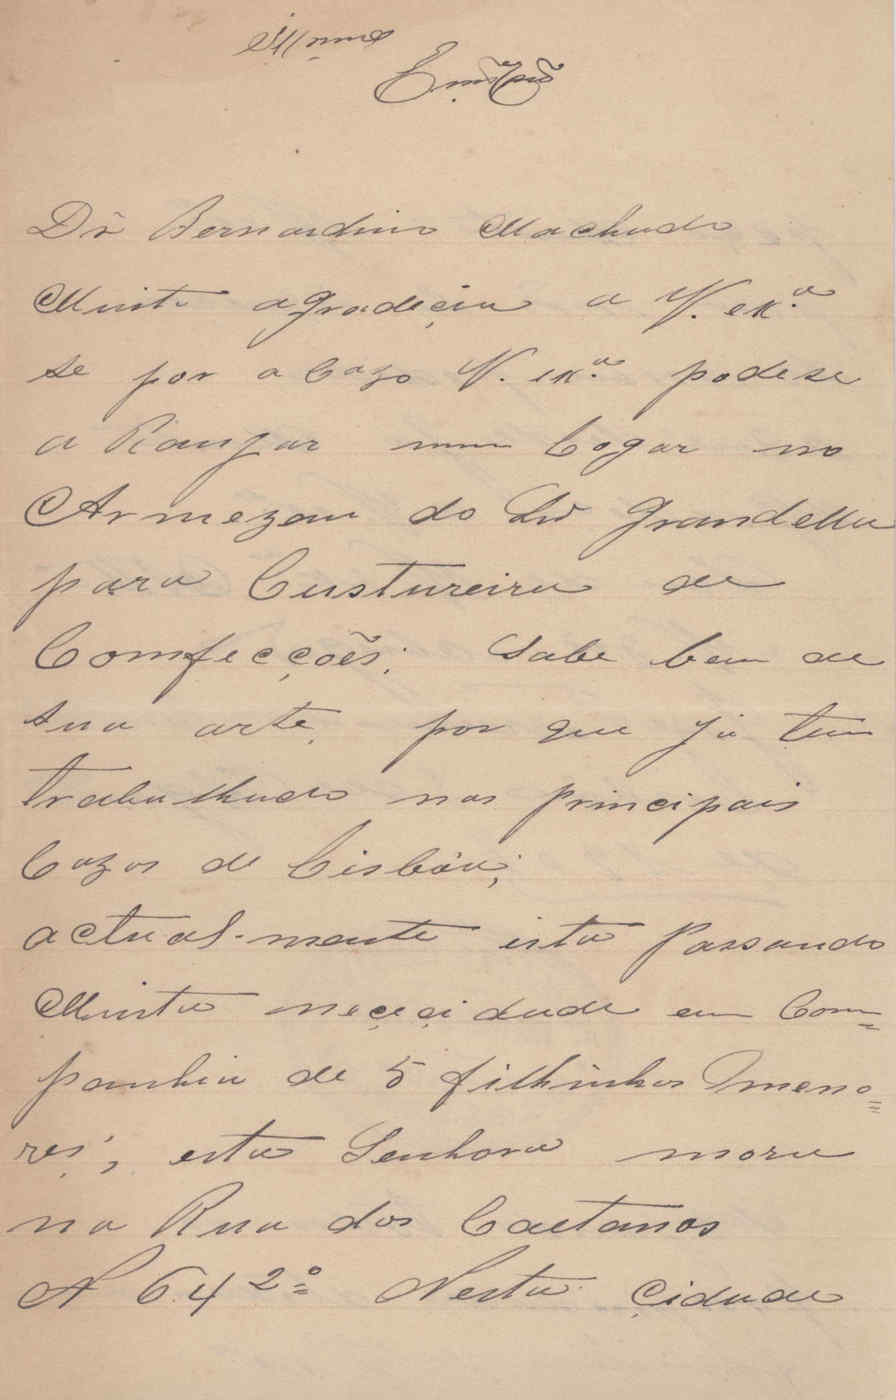 Illmo
Exmo
Dr Bernardino Machado
Muito agradeçia a V. exª
se por a cazo V. exª podese
a Ranjar num Logar no
Armezem do Grandella
para Custureira de
Comfecções; Sabe bem de
sua arte, por que já tem
trabalhado nas principais
Cazas de Lisbôa;
actual-mente esta Passando
Muita neçeçidade em Com=
panhia de 5 filhinhos meno=
res; esta Senhora mora
na Rua dos Caetanos
N 64 2º Nesta Çidade